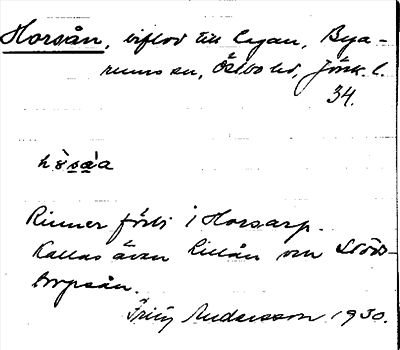 Horsån, biflod till Lagan, Bya-
rums sn, Östbo hd, Jönk. l.
34.
hòsá̱a
Rinner förbi i Horsarp.
Kallas även Lillån om Stöds-
torpsån.
Fritz Andersson 1930.